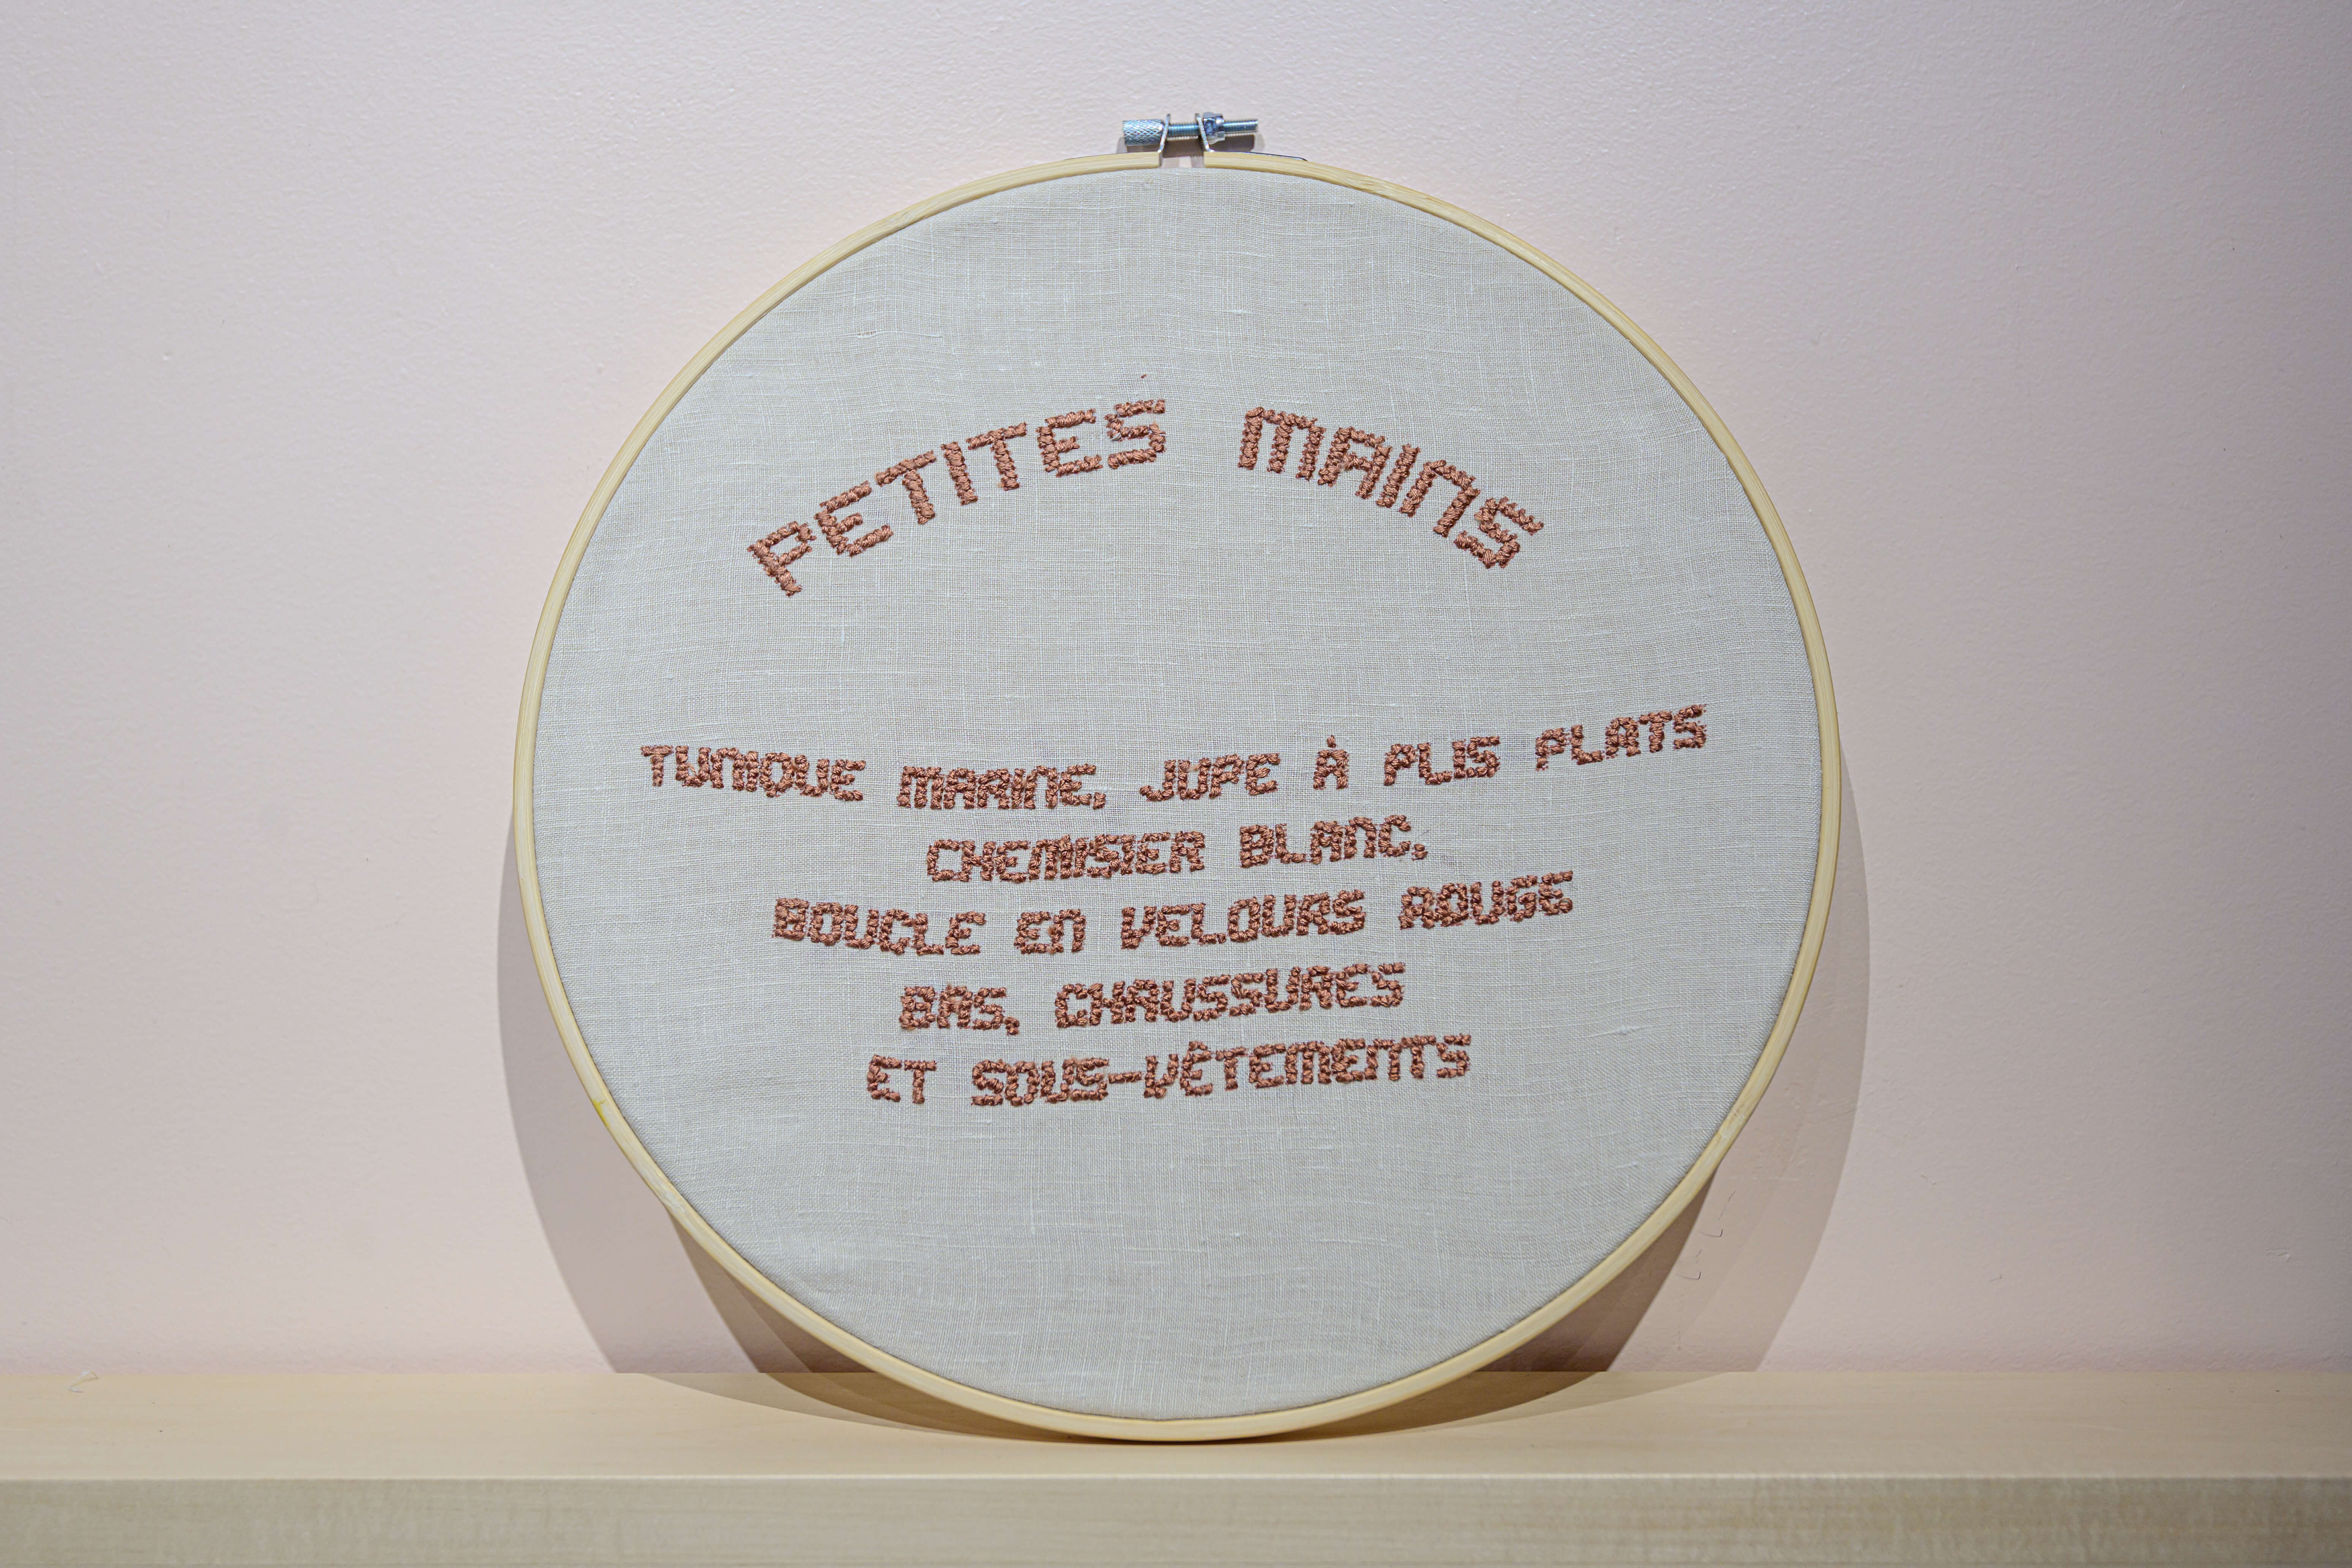 PETITES MAINS
TUNIQUE MARINE, JUPE À PLIS PLATS
CHEMISIER BLANC,
BOUCLE EN VELOURS ROUGE
BAS, CHAUSSURES
ET SOUS-VÊTEMENTS